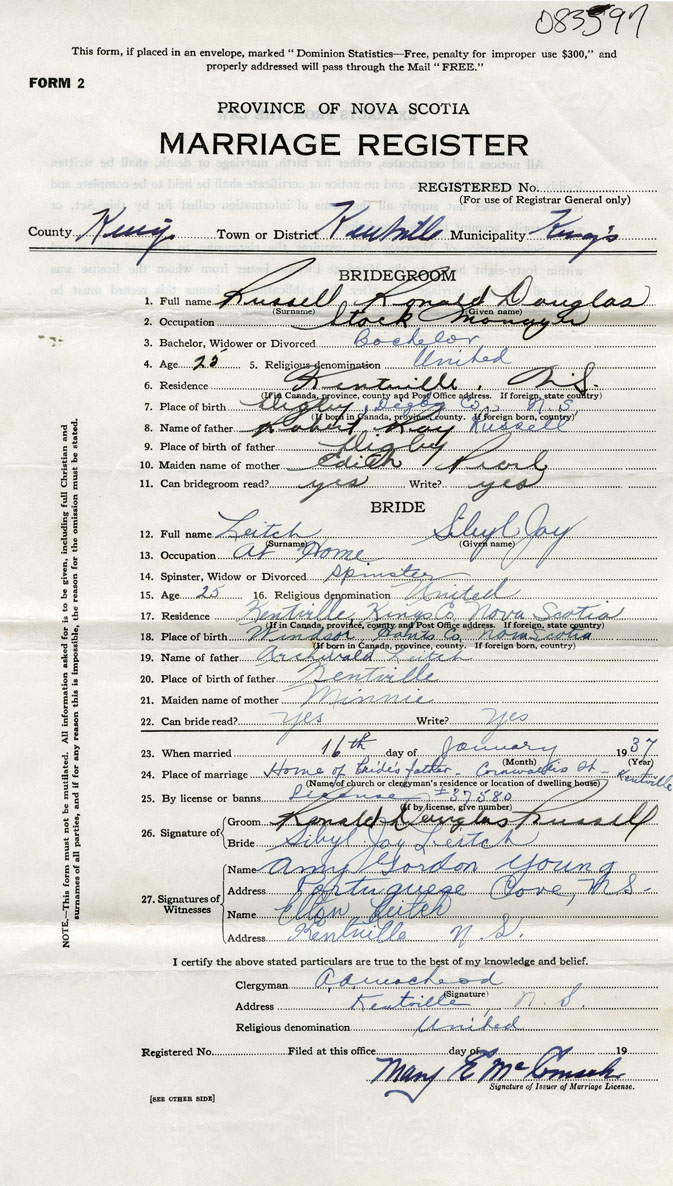 083597
This form, if placed in an envelope, marked "Dominion Statistics—Free, penalty for improper use $300," and
properly addressed will pass through the Mail "FREE."
FORM 2
PROVINCE OF NOVA SCOTIA
MARRIAGE REGISTER
REGISTERED No.
(For use of Registrar General only)
County Kings Town or District Kentville Municipality King's
BRIDEGROOM
1. Full name Russell Ronald Douglas
(Surname) (Given name)
2. Occupation Stock Manager
3. Bachelor, Widower or Divorced Bachelor
4. Age 25 5. Religious denomination United
6. Residence Kentville, N.S.
(If in Canada, province, county and Post Office address. If foreign, state country)
7. Place of birth Digby, Digby Co. N.S
(If born in Canada, province, county. If foreign born, country)
8. Name of father Robert Ray Russell
9. Place of birth of father Digby
10. Maiden name of mother Edith Pearl
11. Can bridegroom read? yes Write? yes
BRIDE
12. Full name Leitch Sibyl Joy
(Surname) (Given name)
13. Occupation At Home
14. Spinster, Widow or Divorced Spinster
15. Age 25 16. Religious denomination United
17. Residence Kentville, Kings Co, Nova Scotia
(If in Canada, province, county and Post Office address. If foreign, state country)
18. Place of birth Windsor, Hants Co, Nova Scotia
(If born in Canada, province, county. If foreign born, country)
19. Name of father Archibald Leitch
20. Place of birth of father Kentville
21. Maiden name of mother Minnie
22. Can bride read? Yes Write? Yes
23. When married 16th day of January 1937
(Month) (Year)
24. Place of marriage Home of bride's father - Cornwallis St - Kentville
(Name of church or clergyman's residence or location of dwelling house)
25. By license or banns License #37580
(If by license, give number)
26. Signature of Groom Ronald Douglas Russell
Bride Sibyl Joy Leitch
27. Signatures of Witnesses Name Amy Gordon Young
Address Portuguese Cove, N.S.
Name Leitch
Address Kentville N.S.
I certify the above stated particulars are true to the best of my knowledge and belief.
Clergyman
(Signature)
Address Kentville, N.S.
Religious denomination United
Registered No. Filed at this office day of 19
Mary E
Signature of Issuer of Marriage License.
[SEE OTHER SIDE]
NOTE.—This form must not be mutilated. All information asked for is to be given, including full Christian and
surnames of all parties, and if for any reason this is impossible, the reason for the omission must be stated.